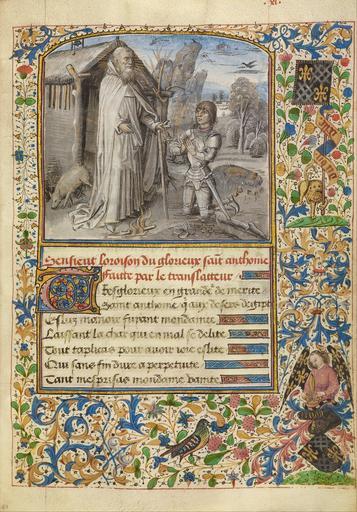 .xi.
Sensieut loroison du glorieux saīt anthoine
faitte par le translateur .
Tres glorieux en grande de merite
Saint anthoine q aux desers degipte
Eslus manoir fuiant mondaine
Laissant la char qui en mal se delite
Tout taplicas pour auoir vie eslite
Qui sans fin dure a perpetuite
Tant mesprisas mondaine vanite